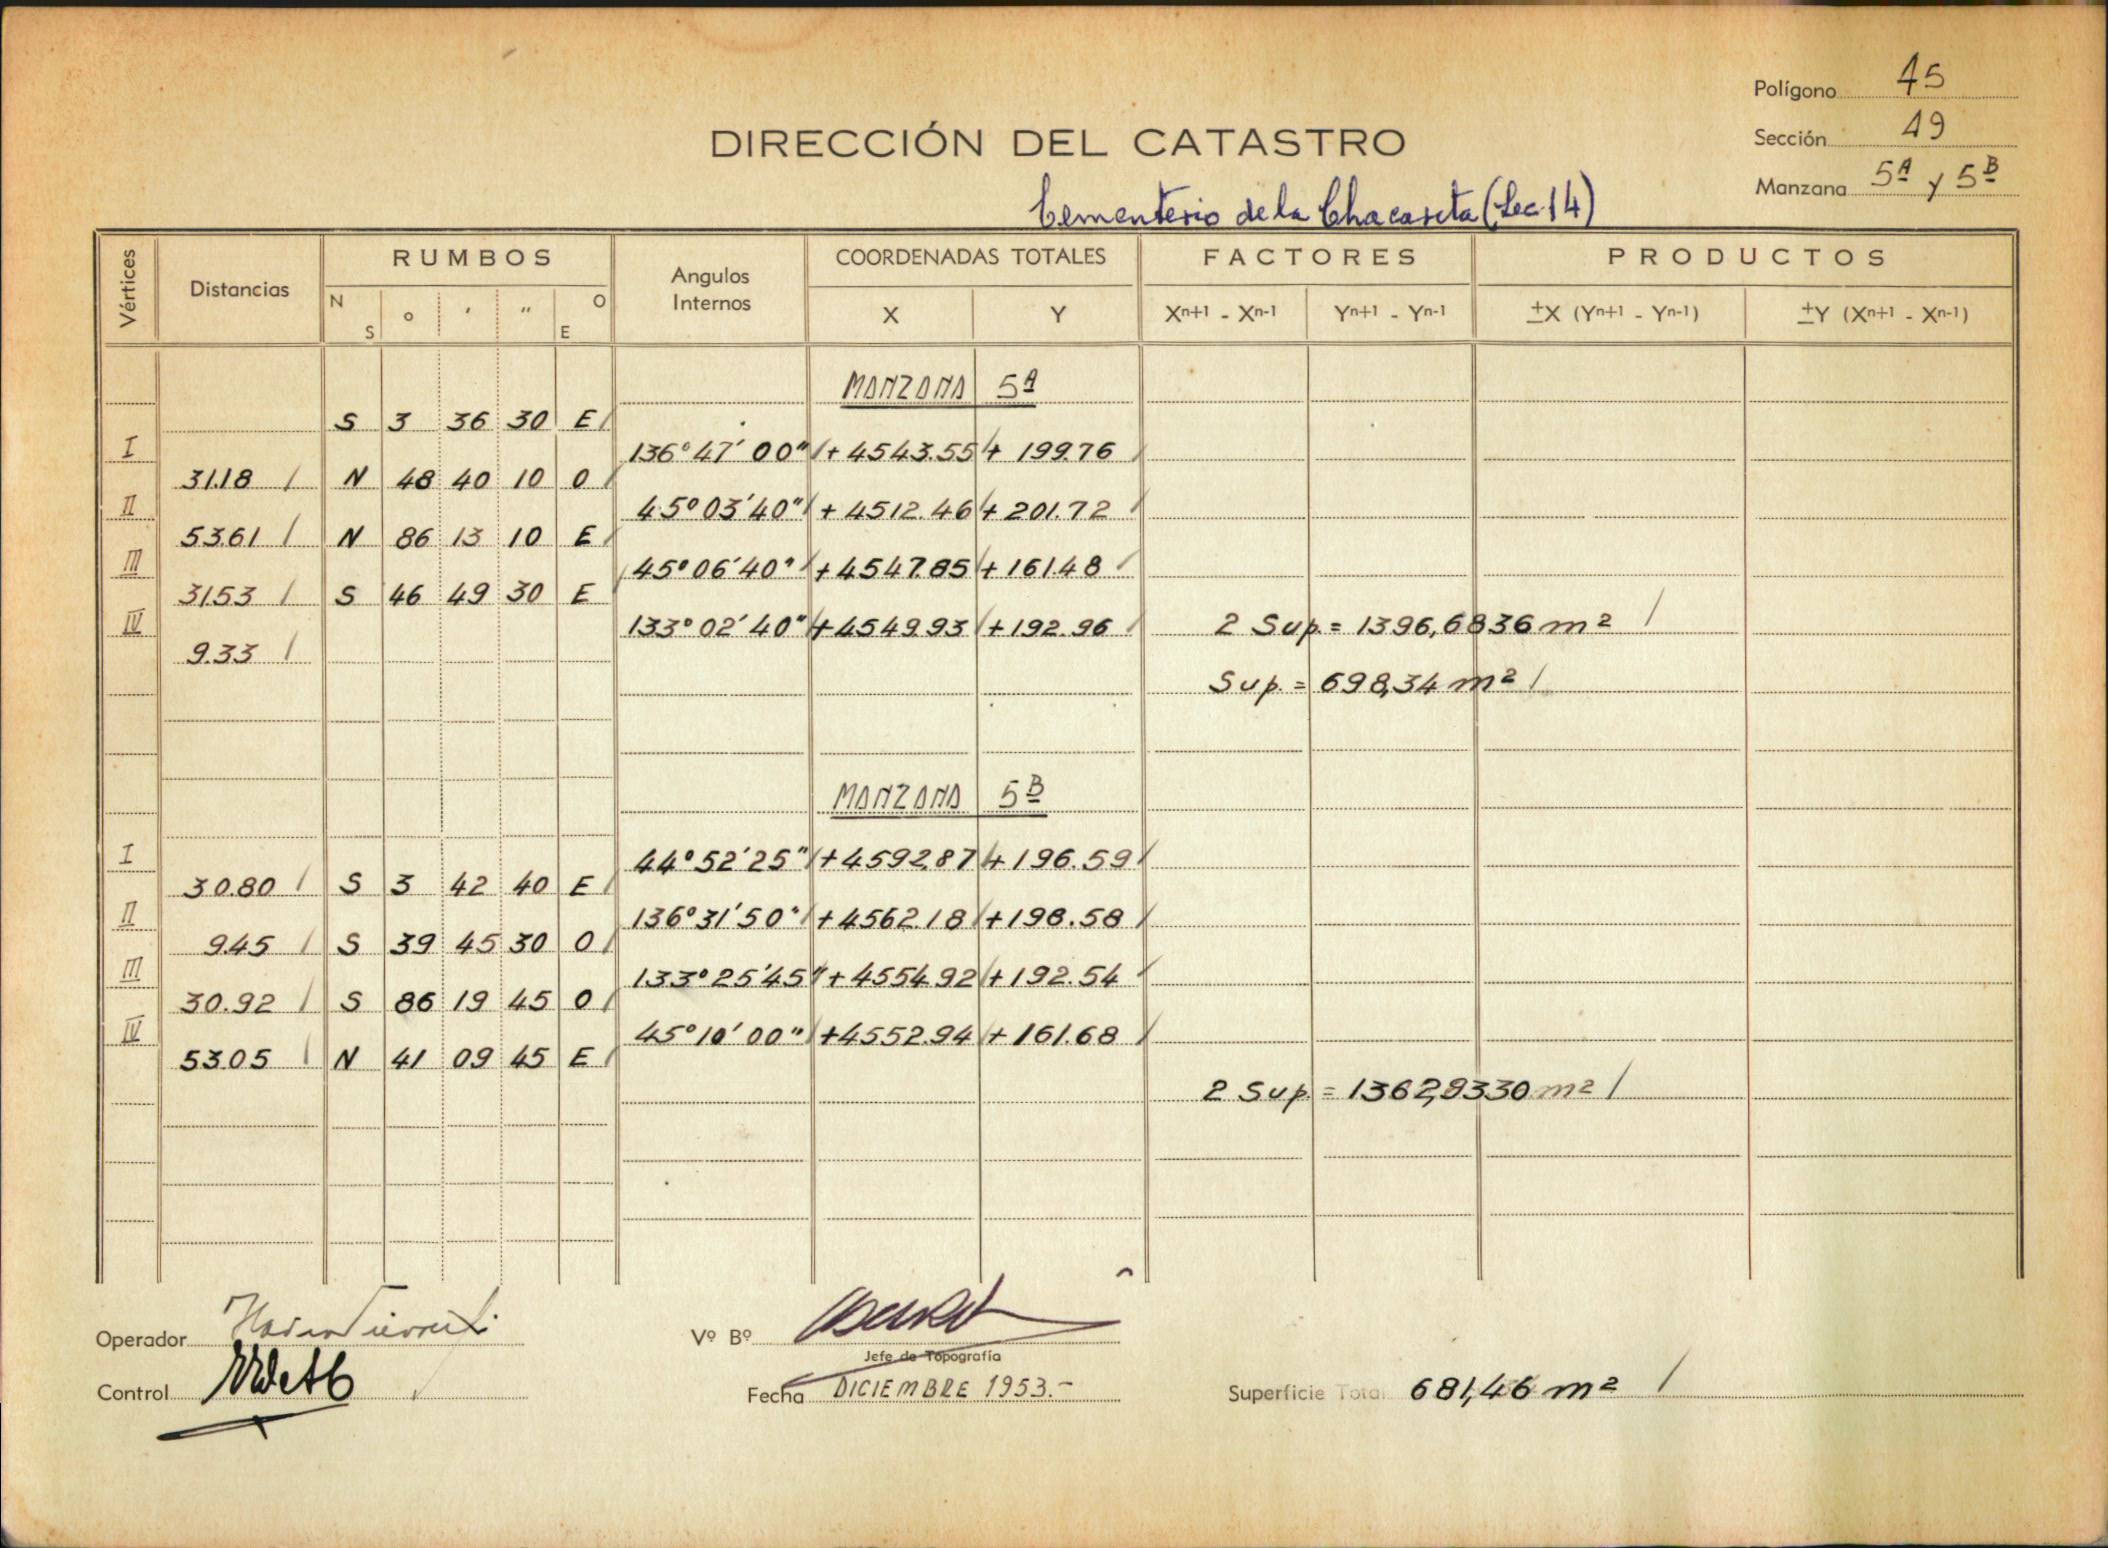 Polígono 45
DIRECCIÓN DEL CATASTRO
Sección 49
Manzana 5A y 5B
Cementerio de la Chacarita (Sec. 14)
Vértices Distancias RUMBOS Angulos Internos COORDENADAS TOTALES FACTORES PRODUCTOS
N S o ′ ″ O E X Y Xn+1 - Xn-1 Yn+1 - Yn-1 ±X (Yn+1 - Yn-1) ±Y (Xn+1 - Xn-1)
MANZANA 5A
S 3 36 30 E
I 136°47′00″ + 4543.55 + 199.76
31.18 N 48 40 10 O
II 45°03′40″ + 4512.46 + 201.72
53.61 N 86 13 10 E
III 45°06′40″ + 4547.85 + 161.48
31.53 S 46 49 30 E
IV 133°02′40″ + 4549.93 + 192.96 2 Sup. = 1396,6836 m2
9.33
Sup. = 698,34 m2
MANZANA 5B
I 44°52′25″ + 4592.87 + 196.59
30.80 S 3 42 40 E
II 136°31′50″ + 4562.18 + 198.58
9.45 S 39 45 30 O
III 133°25′45″ + 4554.92 + 192.54
30.92 S 86 19 45 O
IV 45°10′00″ + 4552.94 + 161.68
53.05 N 41 09 45 E
2 Sup. = 1362,9330 m2
Operador
Vº Bº
Jefe de Topografía
Control
Fecha DICIEMBRE 1953.-
Superficie Total 681,46 m2